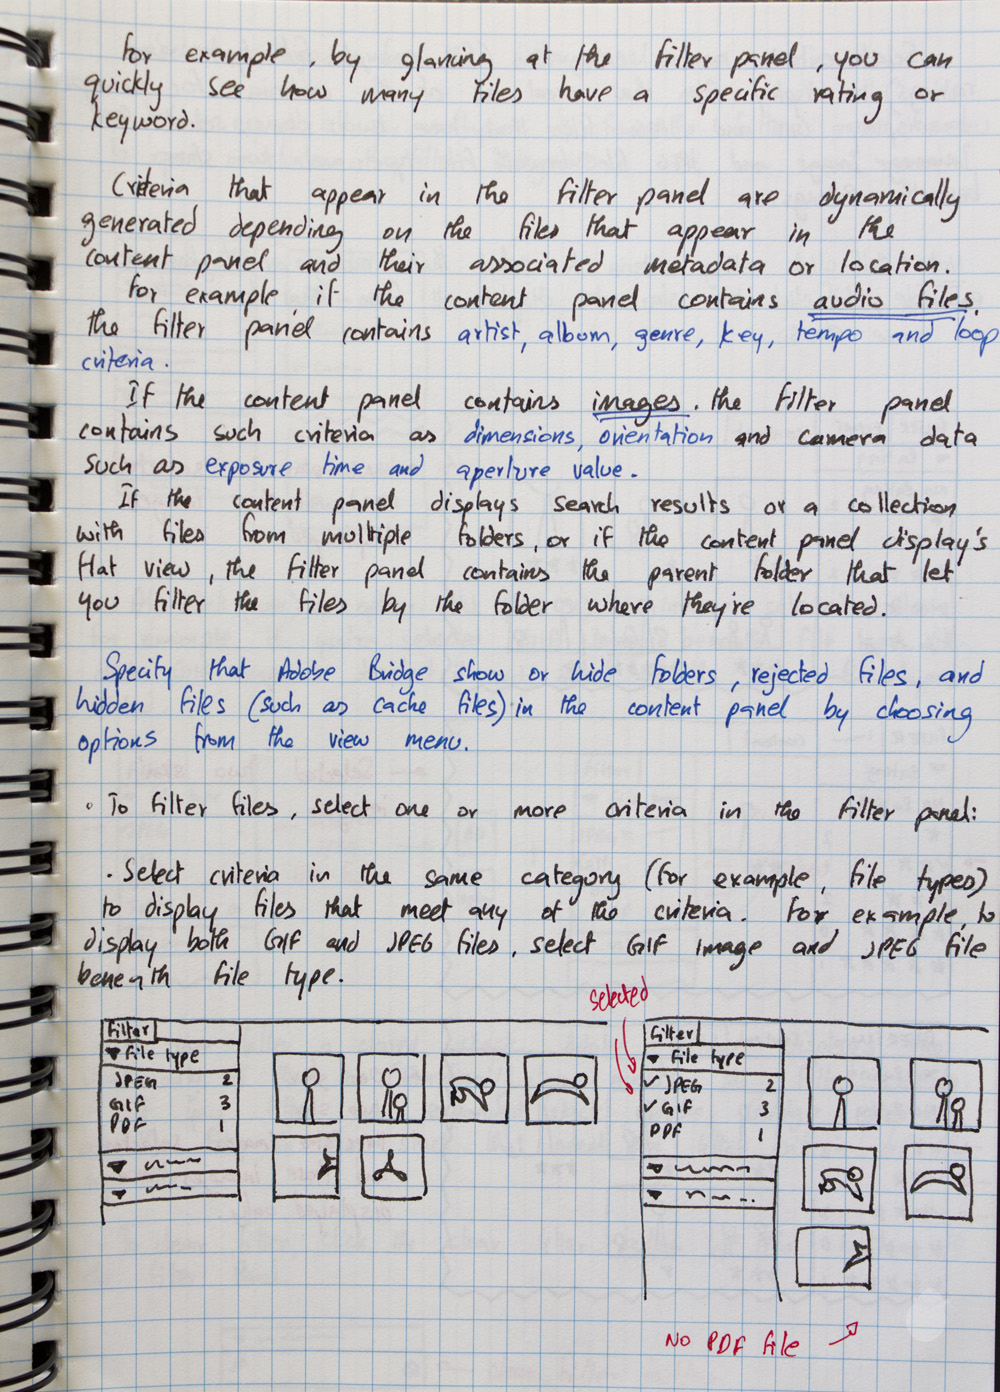 For example, by glancing at the filter panel, you can
quickly see how many files have a specific rating or
keyword.
Criteria that appear in the filter panel are dynamically
generated depending on the files that appear in the
content panel and their associated metadata or location.
For example if the content panel contains audio files,
the filter panel contains artist, album, genre, key, tempo and loop
criteria.
If the content panel contains images. the filter panel
contains such criteria as dimensions, orientation and camera data
such as exposure time and aperture value.
If the content panel displays search results or a collection
with files from multiple folders, or if the content panel display's
flat view, the filter panel contains the parent folder that let
you filter the files by the folder where they're located.
Specify that Adobe Bridge show or hide folders, rejected files, and
hidden files (such as cache files) in the content panel by choosing
options from the view menu.
· To filter files, select one or more criteria in the filter panel:
· Select criteria in the same category (for example, file types)
to display files that meet any of the criteria. For example, to
display both GIF and JPEG files, select GIF Image and JPEG file
beneath file type.
selected
Filter
▼ File type
JPEG 2
GIF 3
PDF 1
Filter
▼ File type
✓ JPEG 2
✓ GIF 3
PDF 1
NO PDF file